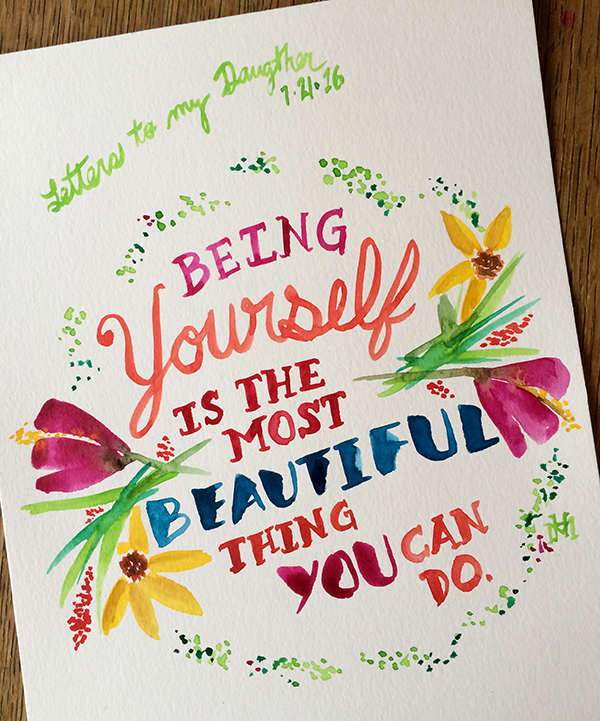 Letters to my Daugther
7.21.16
BEING
Yourself
IS THE
MOST
BEAUTIFUL
THING
YOU CAN
DO.